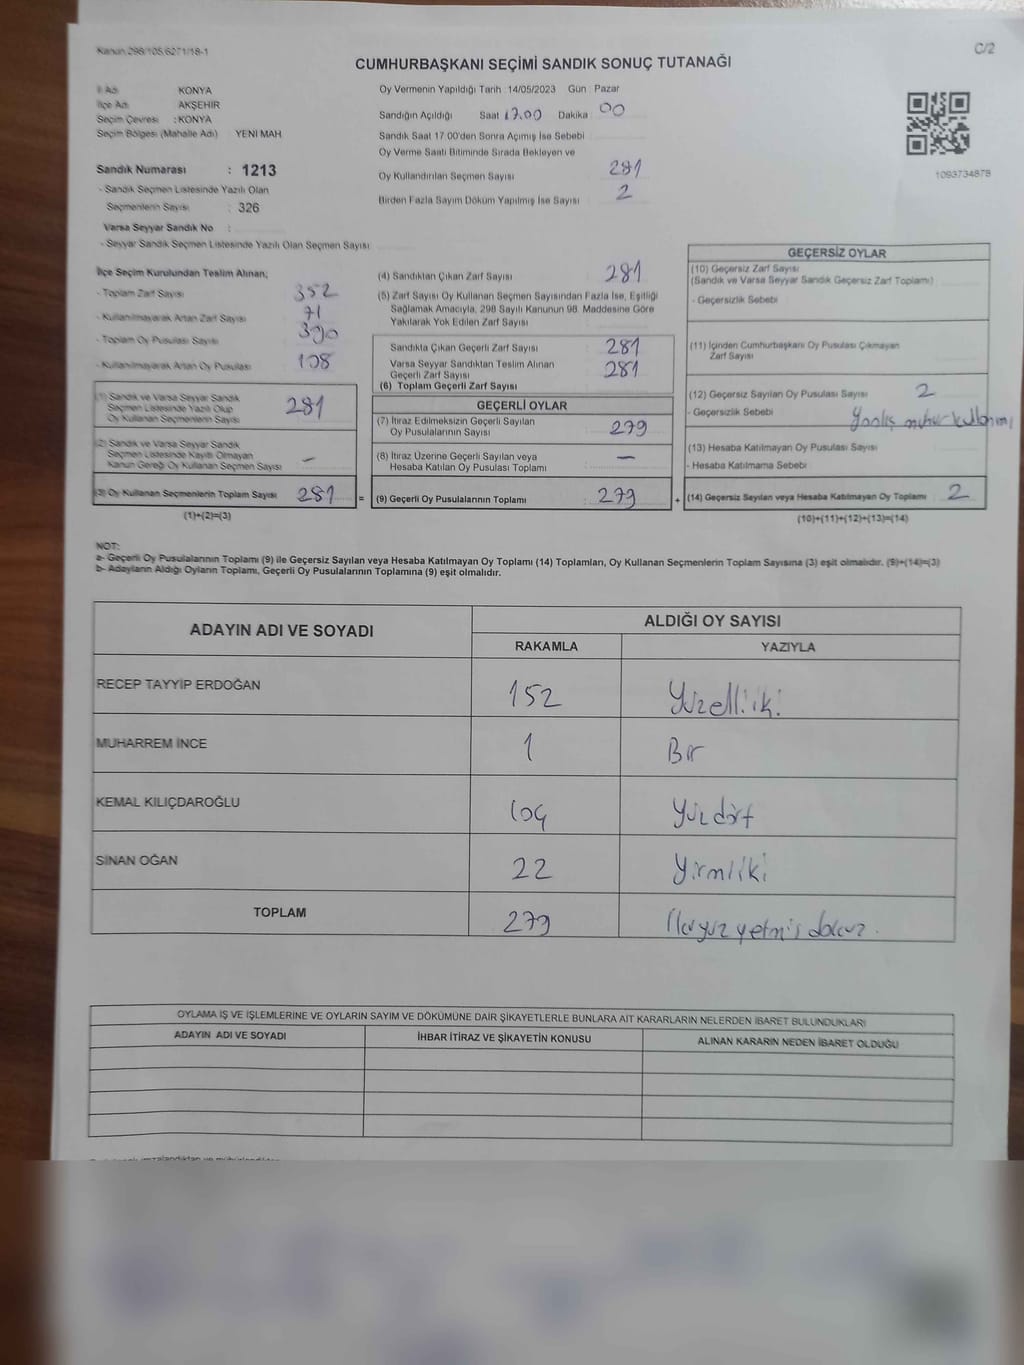 Kanun 298/105,6271/18-1
C/2
CUMHURBAŞKANI SEÇİMİ SANDIK SONUÇ TUTANAĞI
İl Adı KONYA
İlçe Adı AKŞEHİR
Seçim Çevresi : KONYA
Seçim Bölgesi (Mahalle Adı) YENİ MAH
Sandık Numarası : 1213
- Sandık Seçmen Listesinde Yazılı Olan
Seçmenlerin Sayısı : 326
Varsa Seyyar Sandık No :
- Seyyar Sandık Seçmen Listesinde Yazılı Olan Seçmen Sayısı
Oy Vermenin Yapıldığı Tarih 14/05/2023 Gün Pazar
Sandığın Açıldığı Saat 17.00 Dakika 00
Sandık Saat 17 00'den Sonra Açımış İse Sebebi
Oy Verme Saati Bitiminde Sırada Bekleyen ve
Oy Kullandırılan Seçmen Sayısı 281
Birden Fazla Sayım Döküm Yapılmış İse Sayısı 2
1093734878
İlçe Seçim Kurulundan Teslim Alınan;
- Toplam Zarf Sayısı 352
- Kullanılmayarak Artan Zarf Sayısı 71
- Toplam Oy Pusulası Sayısı 390
- Kullanılmayarak Artan Oy Pusulası 108
(1) Sandık ve Varsa Seyyar Sandık
Seçmen Listesinde Yazılı Olup
Oy Kullanan Seçmenlerin Sayısı 281
(2) Sandık ve Varsa Seyyar Sandık
Seçmen Listesinde Kayıtlı Olmayan
Kanun Gereği Oy Kullanan Seçmen Sayısı –
(3) Oy Kullanan Seçmenlerin Toplam Sayısı 281 =
(1)+(2)=(3)
(4) Sandıktan Çıkan Zarf Sayısı 281
(5) Zarf Sayısı Oy Kullanan Seçmen Sayısından Fazla İse, Eşitliği
Sağlamak Amacıyla, 298 Sayılı Kanunun 98. Maddesine Göre
Yakılarak Yok Edilen Zarf Sayısı
Sandıkta Çıkan Geçerli Zarf Sayısı 281
Varsa Seyyar Sandıktan Teslim Alınan
Geçerli Zarf Sayısı 281
(6) Toplam Geçerli Zarf Sayısı
GEÇERLİ OYLAR
(7) İtiraz Edilmeksizin Geçerli Sayılan
Oy Pusulalarının Sayısı 279
(8) İtiraz Üzerine Geçerli Sayılan veya
Hesaba Katılan Oy Pusulası Toplamı –
(9) Geçerli Oy Pusulalarının Toplamı 279 +
GEÇERSİZ OYLAR
(10) Geçersiz Zarf Sayısı
(Sandık ve Varsa Seyyar Sandık Geçersiz Zarf Toplamı)
- Geçersizlik Sebebi
(11) İçinden Cumhurbaşkanı Oy Pusulası Çıkmayan
Zarf Sayısı
(12) Geçersiz Sayılan Oy Pusulası Sayısı 2
- Geçersizlik Sebebi Yanlış mühür kullanımı
(13) Hesaba Katılmayan Oy Pusulası Sayısı
- Hesaba Katılmama Sebebi
(14) Geçersiz Sayılan veya Hesaba Katılmayan Oy Toplamı 2
(10)+(11)+(12)+(13)=(14)
NOT:
a- Geçerli Oy Pusulalarının Toplamı (9) ile Geçersiz Sayılan veya Hesaba Katılmayan Oy Toplamı (14) Toplamları, Oy Kullanan Seçmenlerin Toplam Sayısına (3) eşit olmalıdır. (9)+(14)=(3)
b- Adayların Aldığı Oyların Toplamı, Geçerli Oy Pusulalarının Toplamına (9) eşit olmalıdır.
ADAYIN ADI VE SOYADI ALDIĞI OY SAYISI
RAKAMLA YAZIYLA
RECEP TAYYİP ERDOĞAN 152 Yüzelliiki
MUHARREM İNCE 1 Bir
KEMAL KILIÇDAROĞLU 104 Yüzdört
SİNAN OĞAN 22 Yirmiiki
TOPLAM 279 İkiyüz yetmiş dokuz.
OYLAMA İŞ VE İŞLEMLERİNE VE OYLARIN SAYIM VE DÖKÜMÜNE DAİR ŞİKAYETLERLE BUNLARA AİT KARARLARIN NELERDEN İBARET BULUNDUKLARI
ADAYIN ADI VE SOYADI İHBAR İTİRAZ VE ŞİKAYETİN KONUSU ALINAN KARARIN NEDEN İBARET OLDUĞU